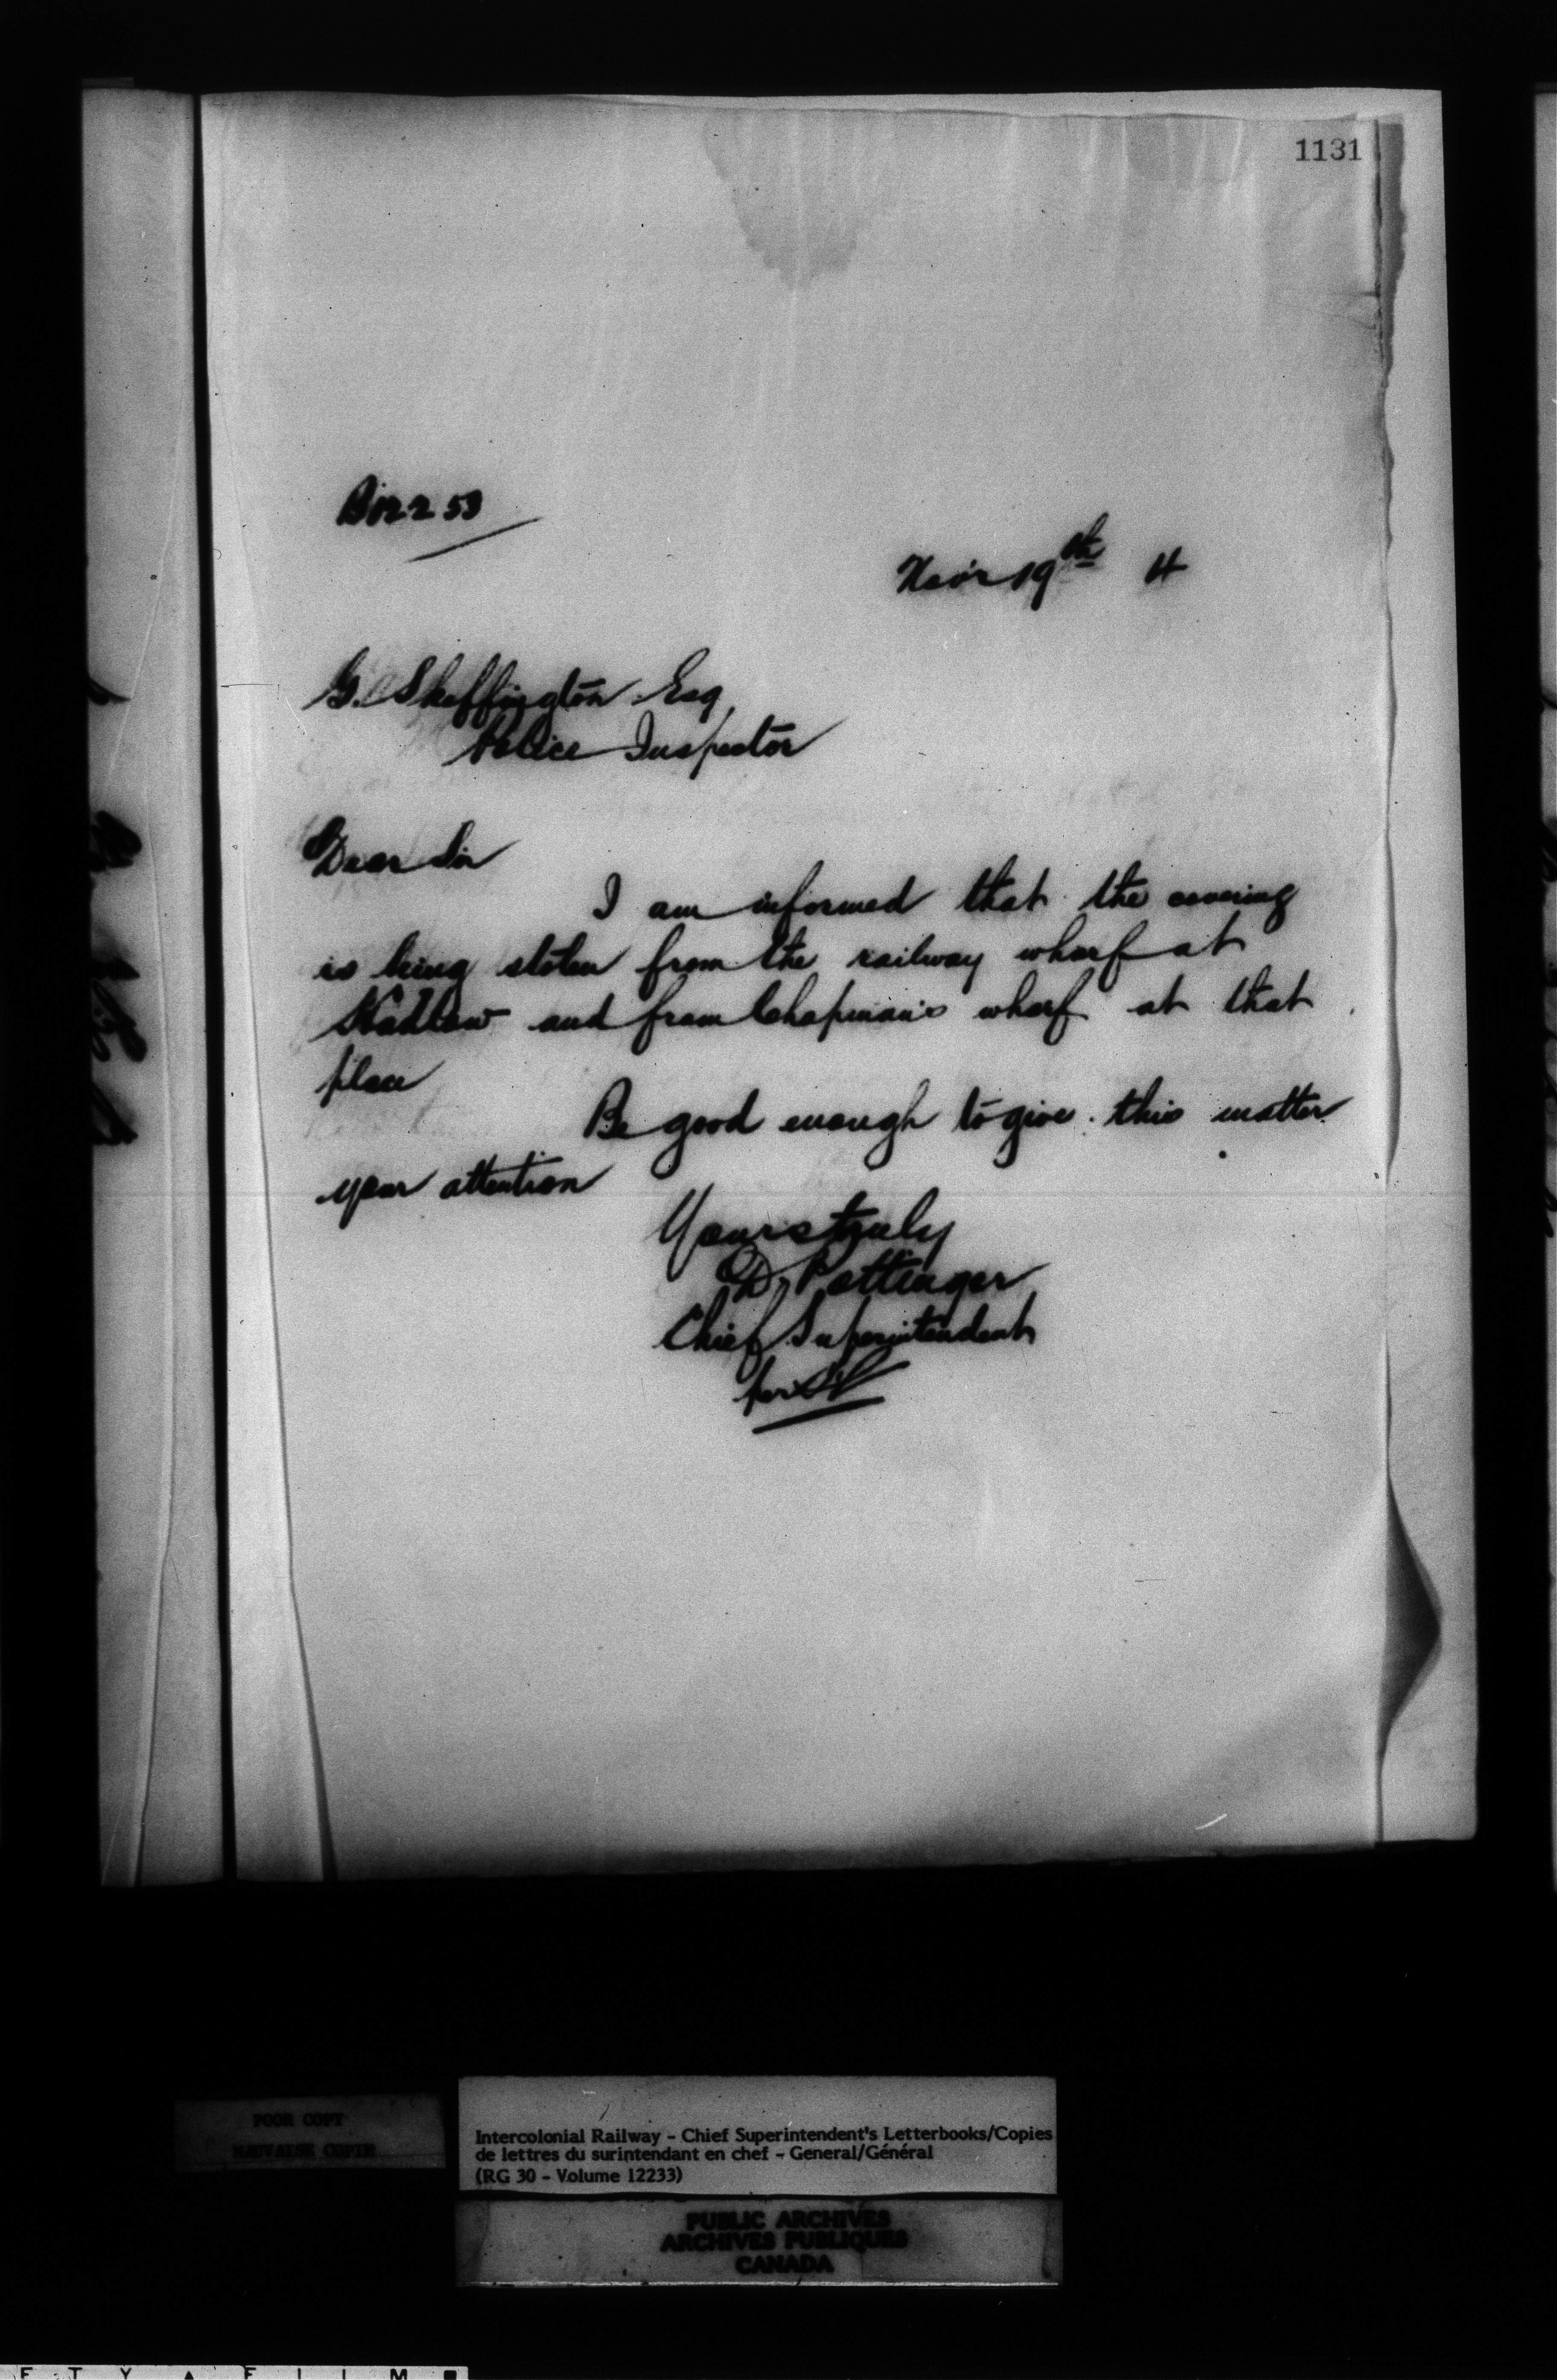 1131
Nov 19th 4
G. Skeffington Esq
Police Inspector
Dear Sir
I am informed that the covering
is being stolen from the railway wharf at
Hadlow and from Chapman's wharf at that
place
Be good enough to give this matter
your attention
Yours truly
D. Pottinger
Chief Superintendent
per
POOR COPY
MAUVAISE COPIE
Intercolonial Railway - Chief Superintendent's Letterbooks/Copies
de lettres du surintendant en chef - General/Général
(RG 30 - Volume 12233)
PUBLIC ARCHIVES
ARCHIVES PUBLIQUES
CANADA
E T Y A F I L M